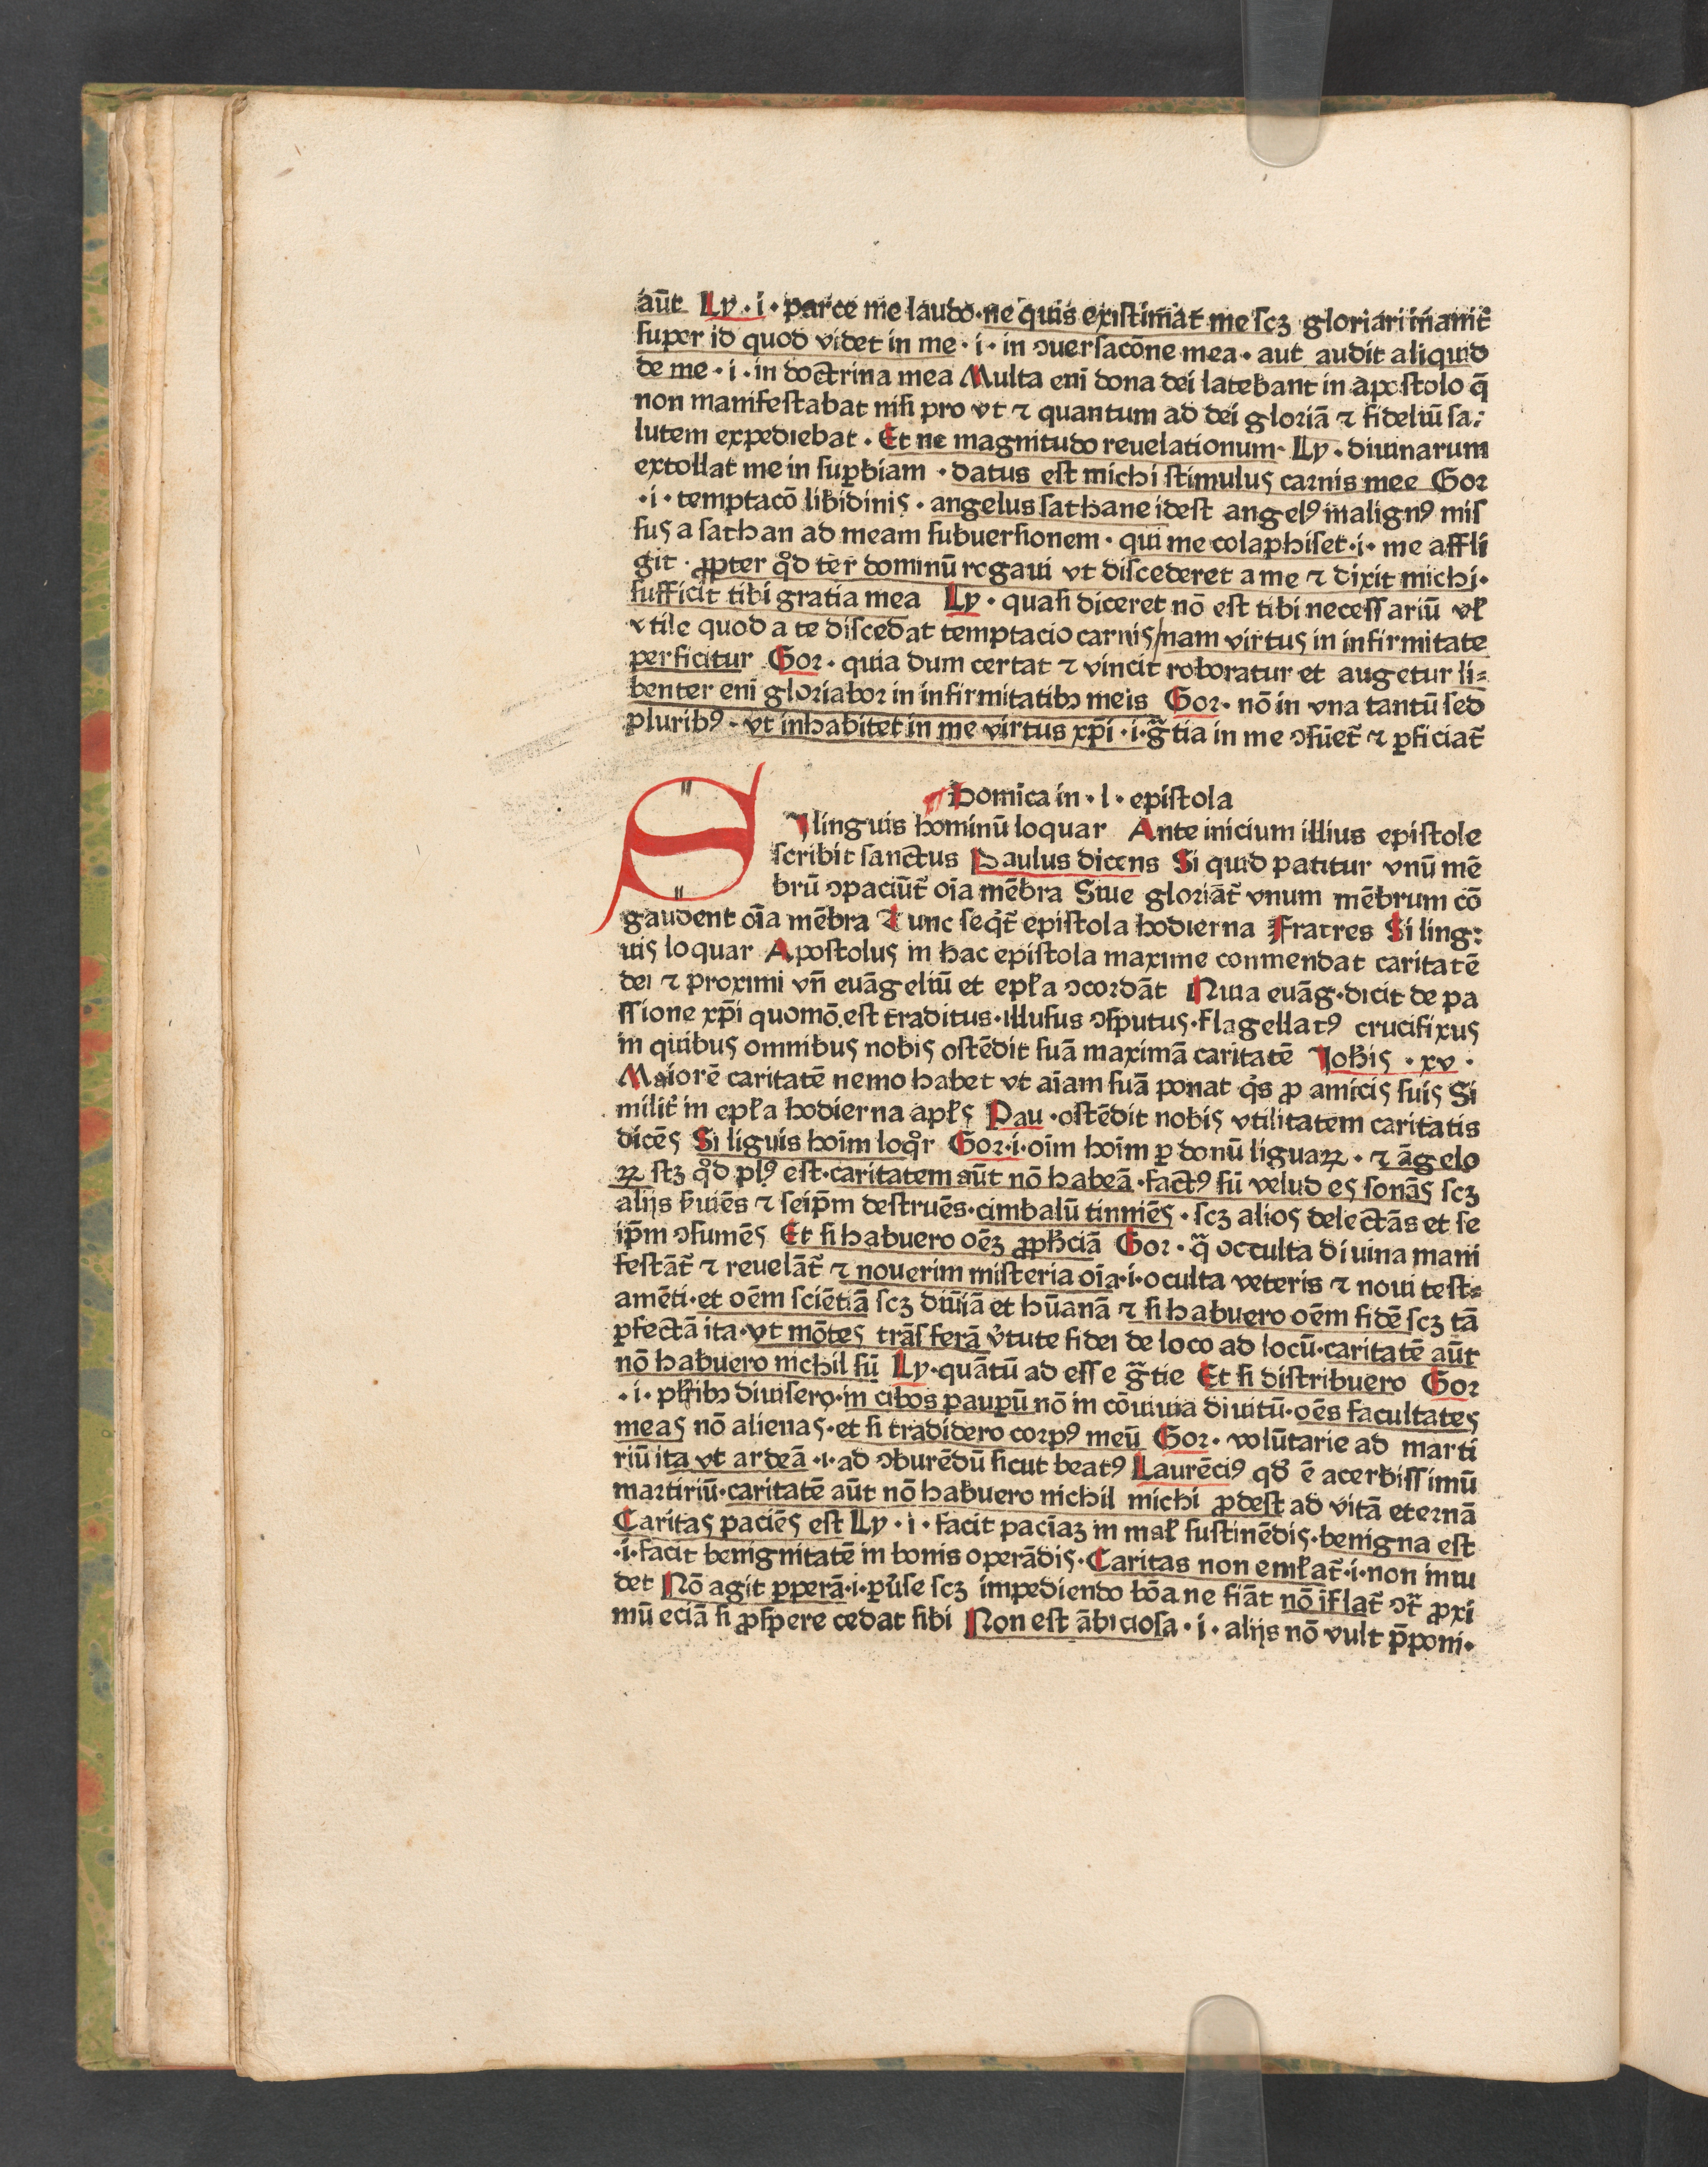 aūt Ly · i · parce me laudo · ne quis existimat me scꝫ gloriari inanit᷑
super id quod videt in me · i · in ↄuersacōne mea · aut audit aliquid
de me · i · in doctrina mea Multa eni̅ dona dei latebant in apostolo q̄
non manifestabat nisi pro vt ⁊ quantum ad dei gloriā ⁊ fideliū sa⹀
lutem expediebat · Et ne magnitudo reuelationum · Ly · diuinarum
extollat me in suꝑbiam · datus est michi stimulus carnis mee Gor
· i · temptacō libidinis · angelus sathane idest angelꝰ malignꝰ mis
sus a sathan ad meam subuersionem · qui me colaphiset · i · me affli
git · ꝓpter qͦd ter dominū rogaui vt discederet a me ⁊ dixit michi ·
sufficit tibi gratia mea Ly · quasi diceret nō est tibi necessariū vł
vtile quod a te discedat temptacio carnis / nam virtus in infirmitate
perficitur Gor · quia dum certat ⁊ vincit roboratur et augetur li⹀
benter eni̅ gloriabor in infirmitatibꝫ meis Gor · nō in vna tantū sed
pluribꝰ · vt inhabitet in me virtus xp̄i · i · gr̄tia in me ↄsūet᷑ ⁊ ꝑficiat᷑
Domica in · l · epistola
SI linguis hominū loquar Ante inicium illius epistole
scribit sanctus Paulus dicens Si quid patitur vnū mē
brū ↄpaciūt᷑ oīa mēbra Siue gloriāt᷑ vnum mēbrum cō
gaudent oīa mēbra Tunc seq̇t᷑ epistola hodierna Fratres Si ling⹀
uis loquar Apostolus in hac epistola maxime conmendat caritatē
dei ⁊ proximi vn̄ euāgeliū et epła ↄcordāt Nuia euāg · dicit de pa
ssione xp̄i quomō est traditus · illusus ↄsputus · flagellatꝰ crucifixus
in quibus omnibus nobis ostēdit suā maximā caritatē Joh̄is · xv ·
Maiorē caritatē nemo habet vt aīam suā ponat q̇s ꝓ amicis suis Si
milit᷑ in epła hodierna apłs Pau · ostēdit nobis vtilitatem caritatis
dicēs Si liguis hoīm loqͦr Gor · i · oīm hoīm ꝑ donū liguaꝝ · ⁊ āgelo
ꝝ stꝫ qͦd plꝰ est · caritatem aūt nō habeā · factꝰ sū velud es sonās scꝫ
alijs s̄uiēs ⁊ seip̄m destruēs · cimbalū tinniēs · scꝫ alios delectās et se
ip̄m ↄsumēs Et si habuero oēꝫ ꝓph̄ciā Gor · q̄ occulta diuina mani
festāt᷑ ⁊ reuelāt᷑ ⁊ nouerim misteria oīa · i · oculta veteris ⁊ noui test⹀
amēti · et oēm sciētiā scꝫ diuīā et hūanā ⁊ si habuero oēm fidē scꝫ tā
ꝑfectā ita · vt mōtes trāsferā v̓tute fidei de loco ad locū · caritatē aūt
nō habuero nichil sū Ly · quātū ad esse gr̄tie Et si distribuero Gor
· i · płribꝫ diuisero · in cibos pauꝑū nō in cōuiuia diuitū · oēs facultates
meas nō alienas · et si tradidero corpꝰ meū Gor · volūtarie ad marti
riū ita vt ardeā · i · ad ↄburēdū sicut beatꝰ Laurēciꝰ qd̄ ē acerbissimū
martiriū · caritatē aūt nō habuero nichil michi ꝓdest ad vitā eternā
Caritas paciēs est Ly · i · facit paciāꝫ in mał sustinēdis · benigna est
· i · facit benignitatē in bonis operādis · Caritas non emłat᷑ · i · non inui
det Nō agit ꝑperā · i · ꝑu̓se scꝫ impediendo bōa ne fiāt nō īflat᷑ ↄt᷑ ꝓxi
mū eciā si ꝓspere cedat sibi Non est ābiciosa · i · alijs nō vult p̄poni ·